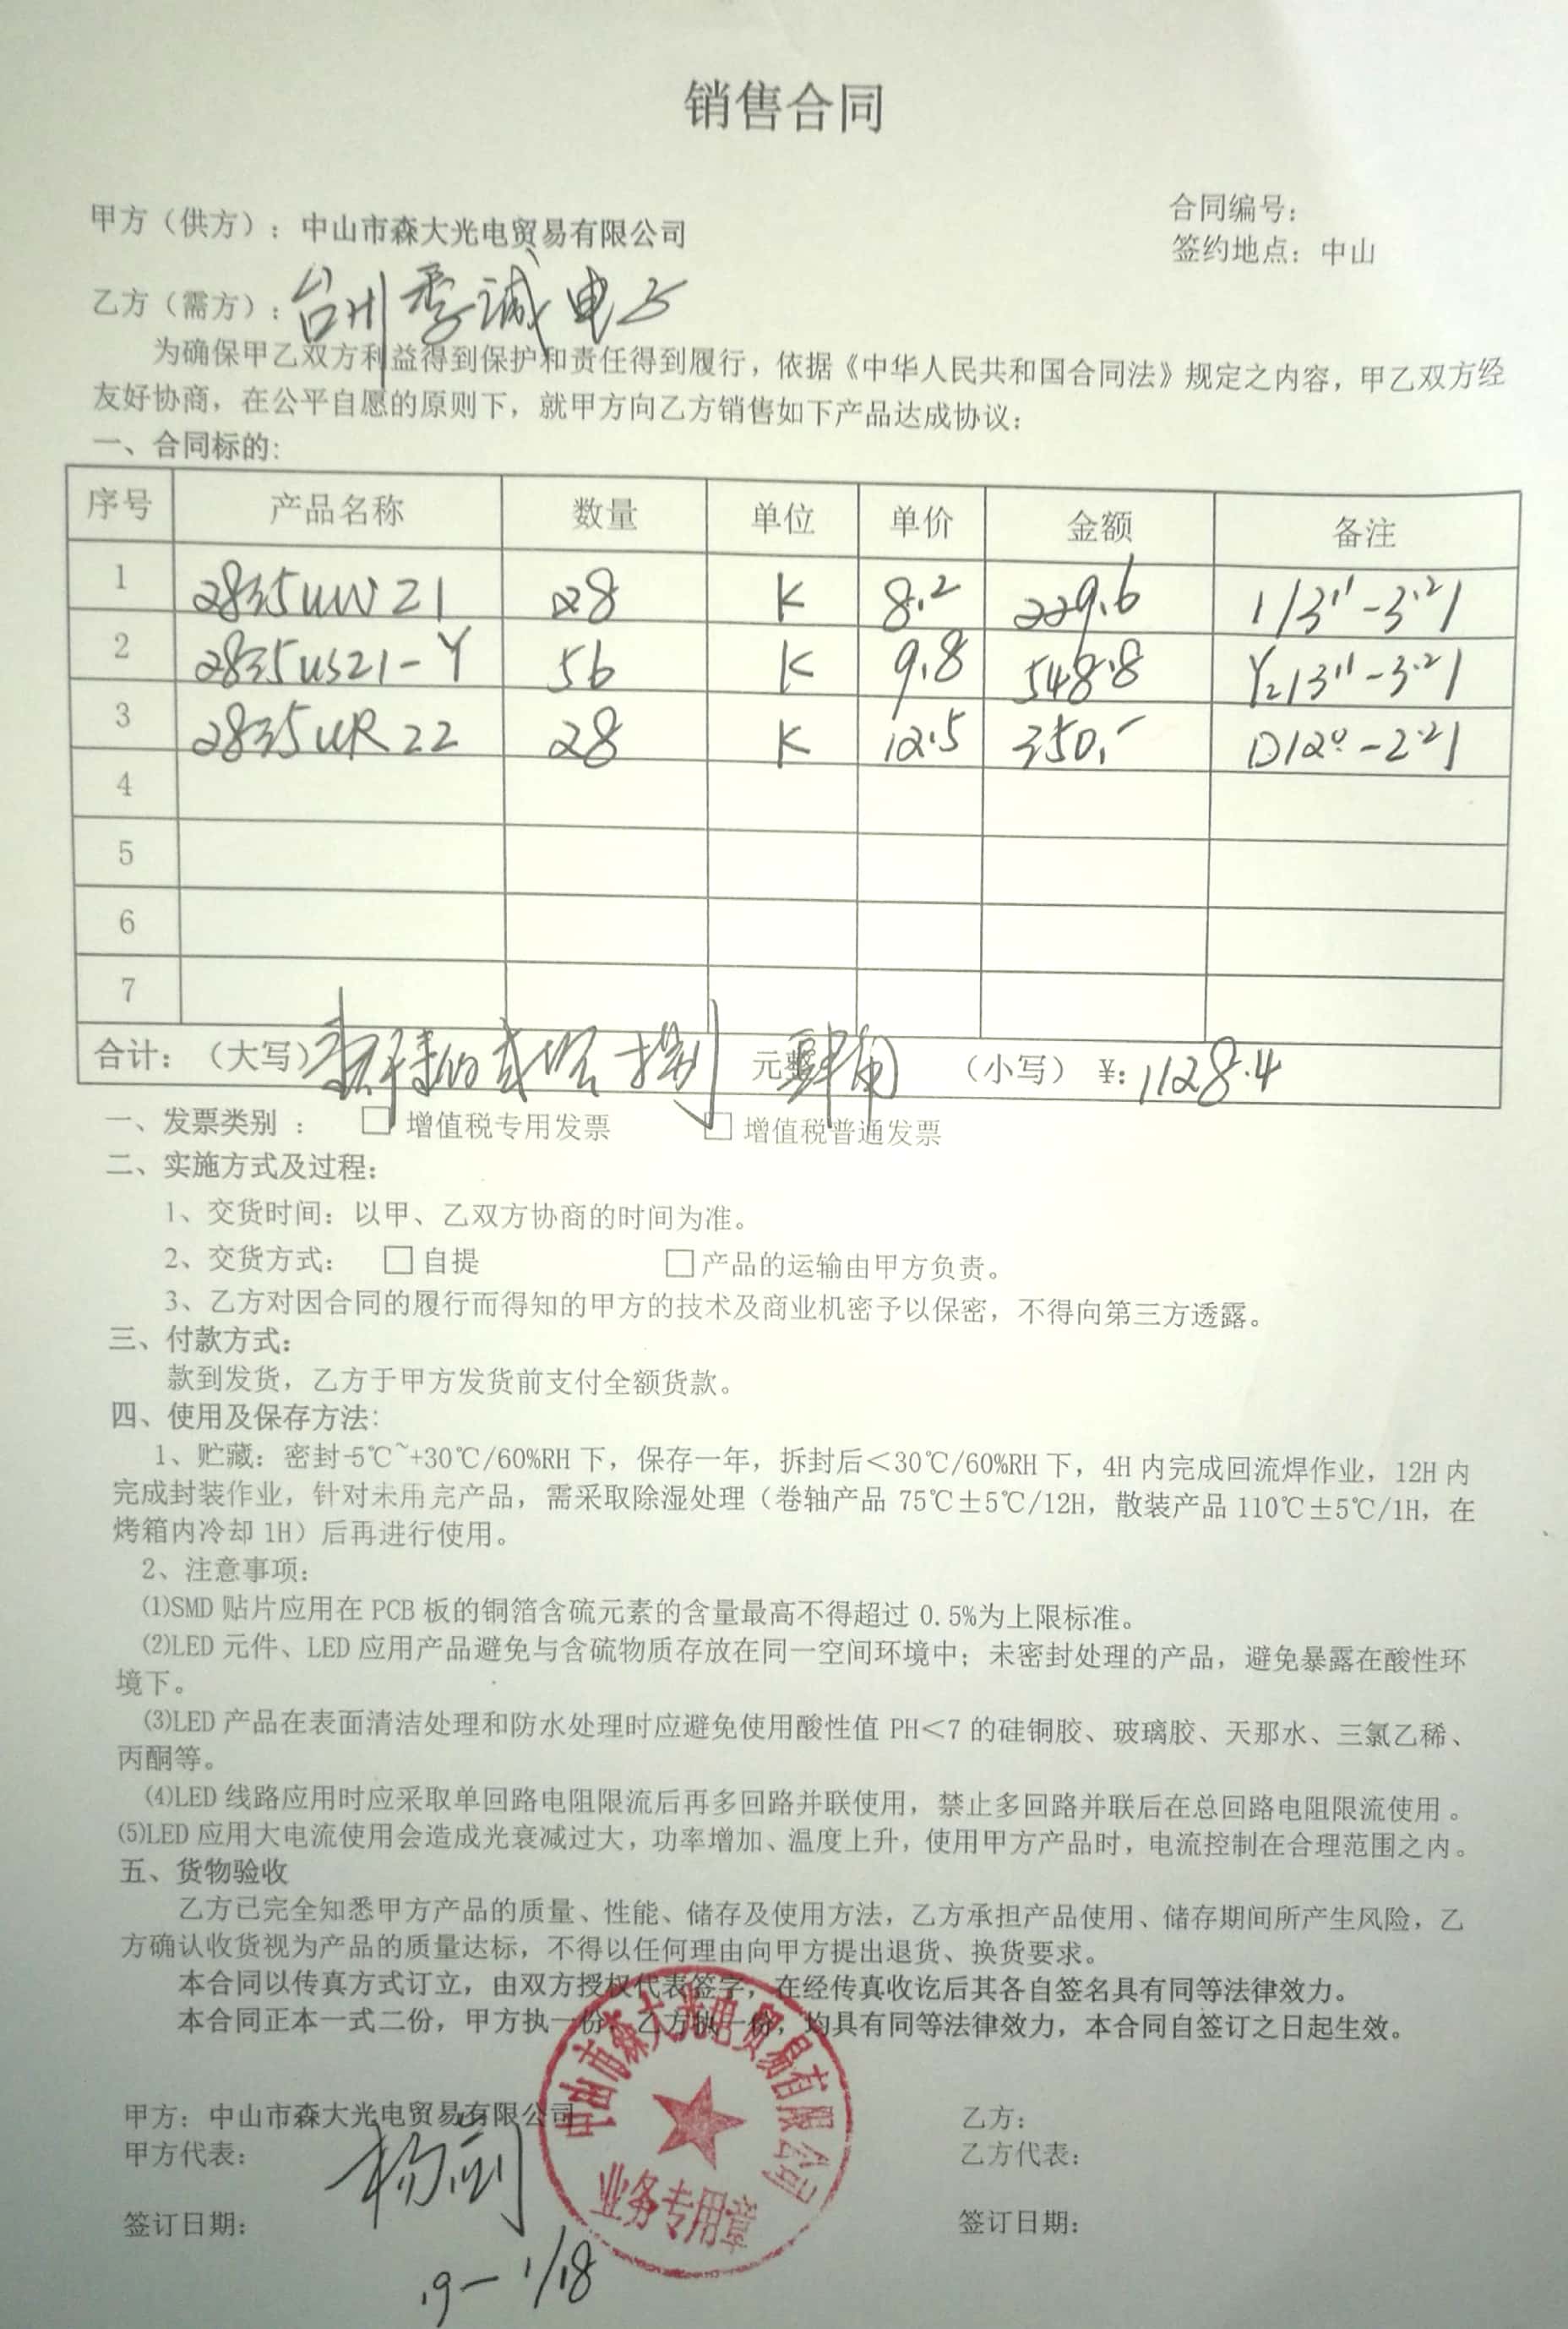 销售合同
合同编号：
甲方（供方）：中山市森大光电贸易有限公司
签约地点：中山
乙方（需方）：台州季诚电子
为确保甲乙双方利益得到保护和责任得到履行，依据《中华人民共和国合同法》规定之内容，甲乙双方经
友好协商，在公平自愿的原则下，就甲方向乙方销售如下产品达成协议：
一、合同标的：
序号 产品名称 数量 单位 单价 金额 备注
1 2835UW21 28 K 8.2 229.6 1/3.1-3.2/
2 2835US21-Y 56 K 9.8 548.8 Y2/3.1-3.2/
3 2835UR22 28 K 12.5 350.- D/2.0-2.2/
4
5
6
7
合计：（大写）壹仟壹佰贰拾捌 元整 肆角 （小写）¥：1128.4
一、发票类别 ： □ 增值税专用发票 □ 增值税普通发票
二、实施方式及过程：
1、交货时间：以甲、乙双方协商的时间为准。
2、交货方式： □ 自提 □产品的运输由甲方负责。
3、乙方对因合同的履行而得知的甲方的技术及商业机密予以保密，不得向第三方透露。
三、付款方式：
款到发货，乙方于甲方发货前支付全额货款。
四、使用及保存方法：
1、贮藏：密封-5℃~+30℃/60%RH 下，保存一年，拆封后＜30℃/60%RH 下，4H 内完成回流焊作业，12H 内
完成封装作业，针对未用完产品，需采取除湿处理（卷轴产品 75℃±5℃/12H，散装产品 110℃±5℃/1H，在
烤箱内冷却 1H）后再进行使用。
2、注意事项：
⑴SMD 贴片应用在 PCB 板的铜箔含硫元素的含量最高不得超过 0.5%为上限标准。
⑵LED 元件、LED 应用产品避免与含硫物质存放在同一空间环境中；未密封处理的产品，避免暴露在酸性环
境下。
⑶LED 产品在表面清洁处理和防水处理时应避免使用酸性值 PH＜7 的硅铜胶、玻璃胶、天那水、三氯乙稀、
丙酮等。
⑷LED 线路应用时应采取单回路电阻限流后再多回路并联使用，禁止多回路并联后在总回路电阻限流使用。
⑸LED 应用大电流使用会造成光衰减过大，功率增加、温度上升，使用甲方产品时，电流控制在合理范围之内。
五、货物验收
乙方已完全知悉甲方产品的质量、性能、储存及使用方法，乙方承担产品使用、储存期间所产生风险，乙
方确认收货视为产品的质量达标，不得以任何理由向甲方提出退货、换货要求。
本合同以传真方式订立，由双方授权代表签字，在经传真收讫后其各自签名具有同等法律效力。
本合同正本一式二份，甲方执一份，乙方执一份，均具有同等法律效力，本合同自签订之日起生效。
中山市森大光电贸易有限公司
业务专用章
甲方：中山市森大光电贸易有限公司
乙方：
甲方代表：
乙方代表：
签订日期：
签订日期：
19-1/18